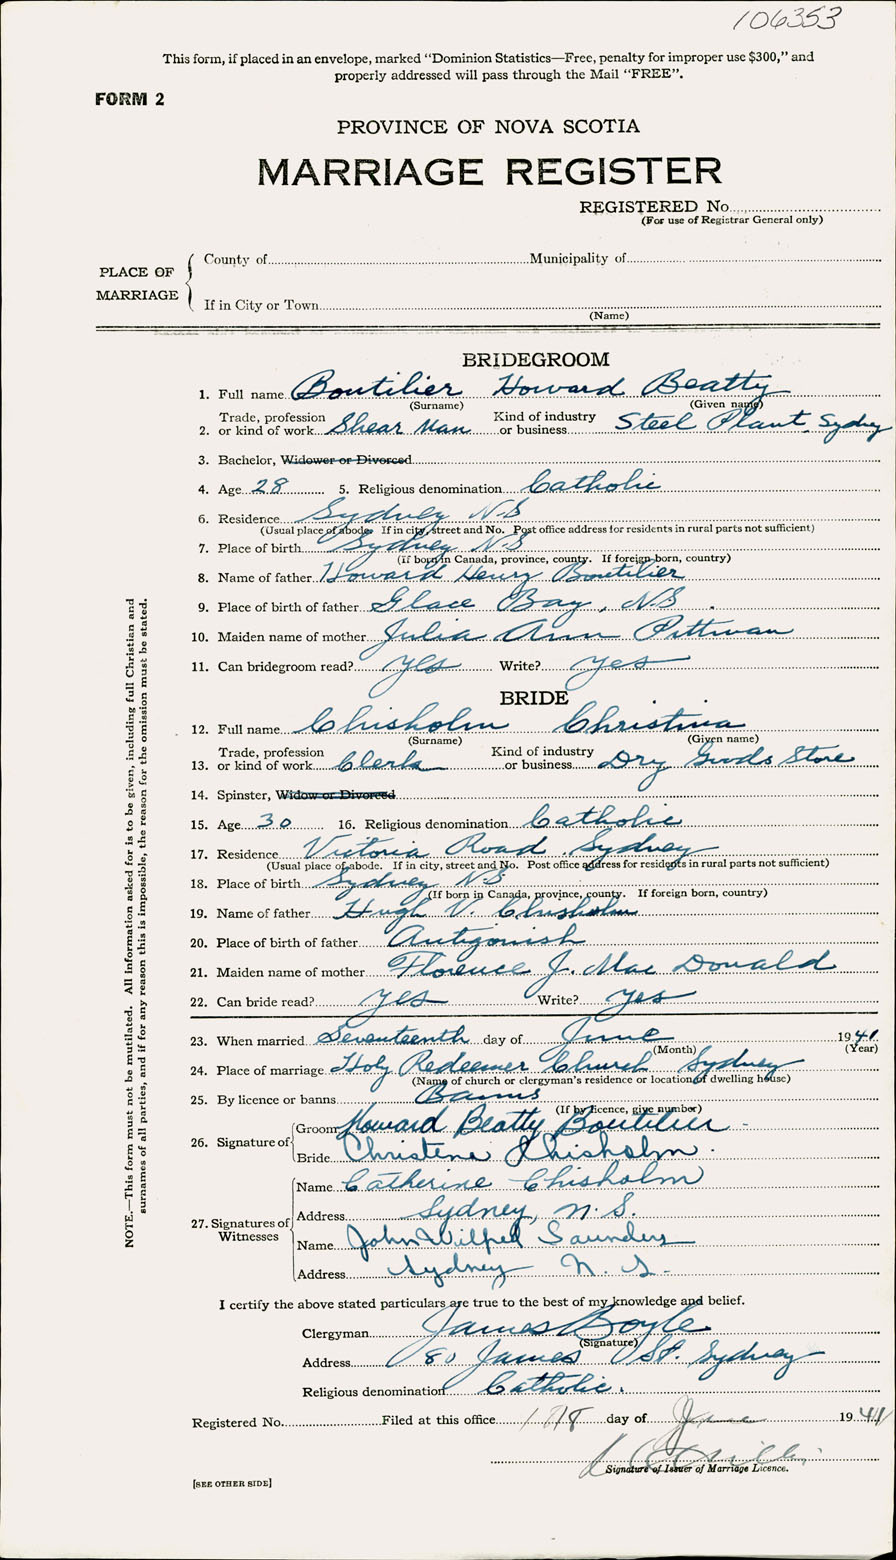 106353
This form, if placed in an envelope, marked "Dominion Statistics—Free, penalty for improper use $300," and
properly addressed will pass through the Mail "FREE".
FORM 2
PROVINCE OF NOVA SCOTIA
MARRIAGE REGISTER
REGISTERED No.
(For use of Registrar General only)
PLACE OF MARRIAGE
County of Municipality of
If in City or Town
(Name)
BRIDEGROOM
1. Full name Boutilier Howard Beatty
(Surname) (Given name)
2. Trade, profession or kind of work Shear Man Kind of industry or business Steel Plant Sydney
3. Bachelor, Widower or Divorced
4. Age 28 5. Religious denomination Catholic
6. Residence Sydney N.S
(Usual place of abode. If in city, street and No. Post office address for residents in rural parts not sufficient)
7. Place of birth Sydney N.S
(If born in Canada, province, county. If foreign born, country)
8. Name of father Howard Henry Boutilier
9. Place of birth of father Glace Bay, N.S.
10. Maiden name of mother Julia Ann Pittman
11. Can bridegroom read? yes Write? yes
BRIDE
12. Full name Chisholm Christina
(Surname) (Given name)
13. Trade, profession or kind of work Clerk Kind of industry or business Dry Goods Store
14. Spinster, Widow or Divorced
15. Age 30 16. Religious denomination Catholic
17. Residence Victoria Road, Sydney
(Usual place of abode. If in city, street and No. Post office address for residents in rural parts not sufficient)
18. Place of birth Sydney N.S
(If born in Canada, province, county. If foreign born, country)
19. Name of father Hugh V. Chisholm
20. Place of birth of father Antigonish
21. Maiden name of mother Florence J. Mac Donald
22. Can bride read? yes Write? yes
23. When married Seventeenth day of June 1941
(Month) (Year)
24. Place of marriage Holy Redeemer Church Sydney
(Name of church or clergyman's residence or location of dwelling house)
25. By licence or banns Banns
(If by licence, give number)
26. Signature of Groom Howard Beatty Boutilier
Bride Christene Chisholm
27. Signatures of Witnesses
Name Catherine Chisholm
Address Sydney, N.S.
Name John Wilfred Saunders
Address Sydney N.S.
I certify the above stated particulars are true to the best of my knowledge and belief.
Clergyman James Boyle
(Signature)
Address 80 James St. Sydney
Religious denomination Catholic.
Registered No. Filed at this office day of June 1941
Signature of Issuer of Marriage Licence.
[SEE OTHER SIDE]
NOTE.—This form must not be mutilated. All information asked for is to be given, including full Christian and
surnames of all parties, and if for any reason this is impossible, the reason for the omission must be stated.